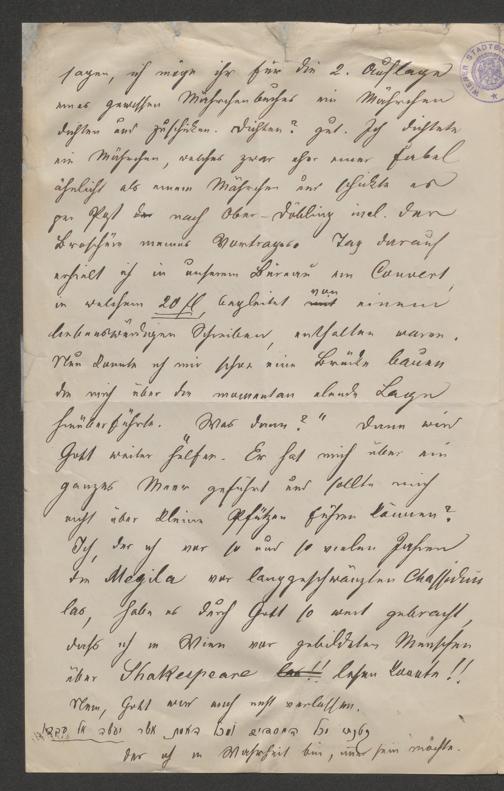 sagen, ich möge ihr für die 2. Auflage
eines gewissen Mährchenbuches ein Mährchen
dichten und zuschicken. Dichten? gut. Ich dichtete
ein Mährchen, welches zwar eher einer Fabel
ähnlicht als einem Mährchen und schickte es
per Post der nach Ober-Döbling incl. der
Broschüre meines Vortrages. Tag darauf
erhielt ich in unserem Büreau ein Couvert,
in welchem 20 fl, begleitet mit von einem
liebenswürdigen Schreiben, enthalten waren.
Nun konnte ich mir schon eine Brücke bauen
die mich über die momentan elende Lage
hinüberführte. Was dann?" Dann wird
Gott weiter hülfen. Er hat mich über ein
ganzes Meer geführt und sollte mich
nicht über kleine Pfützen führen können?
Ich, der ich vor so und so vielen Jahren
die Megila vor langgeschwänzten Chassidim
las, habe es durch Gott so weit gebracht,
dass ich in Wien vor gebildeten Menschen
über Shakespeare las!! lesen konnte!!
Nein, Gott wird mich nicht verlassen.
der ich in Wahrheit bin, immer sein möchte.
WIENER STADT